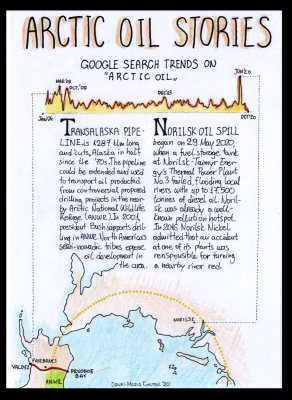 ARCTIC OIL STORIES
GOOGLE SEARCH TRENDS ON
"ARCTIC OIL"
JUN'20
MAR'05
OCT.'05
DEC'15
JAN'04
OCT'20
TRANSALASKA PIPE-
LINE is 1287 km long
and cuts Alaska in half
since the '70s. The pipeline
could be extended and used
to transport oil produced
from controversial proposed
drilling projects in the near-
by Arctic National Wildlife
Refuge (ANWR). In 2001,
president Bush supports dril-
ling in ANWR. North America's
semi-nomadic tribes oppose
oil development in
the area.
NORILSK OIL SPILL
began on 29 May 2020,
when a fuel storage tank
at Norilsk-Taimyr Ener-
gy's Thermal Power Plant
No. 3 failed, flooding local
rivers with up to 17,500
tonnes of diesel oil. Noril-
sk was already a well-
known pollution hotspot.
In 2016 Norilsk Nickel
admitted that an accident
at one of its plants was
rensponsible for turning
a nearby river red.
NORILSK
FAIRBANKS
VALDEZ
PRUDHOE
BAY
ANWR